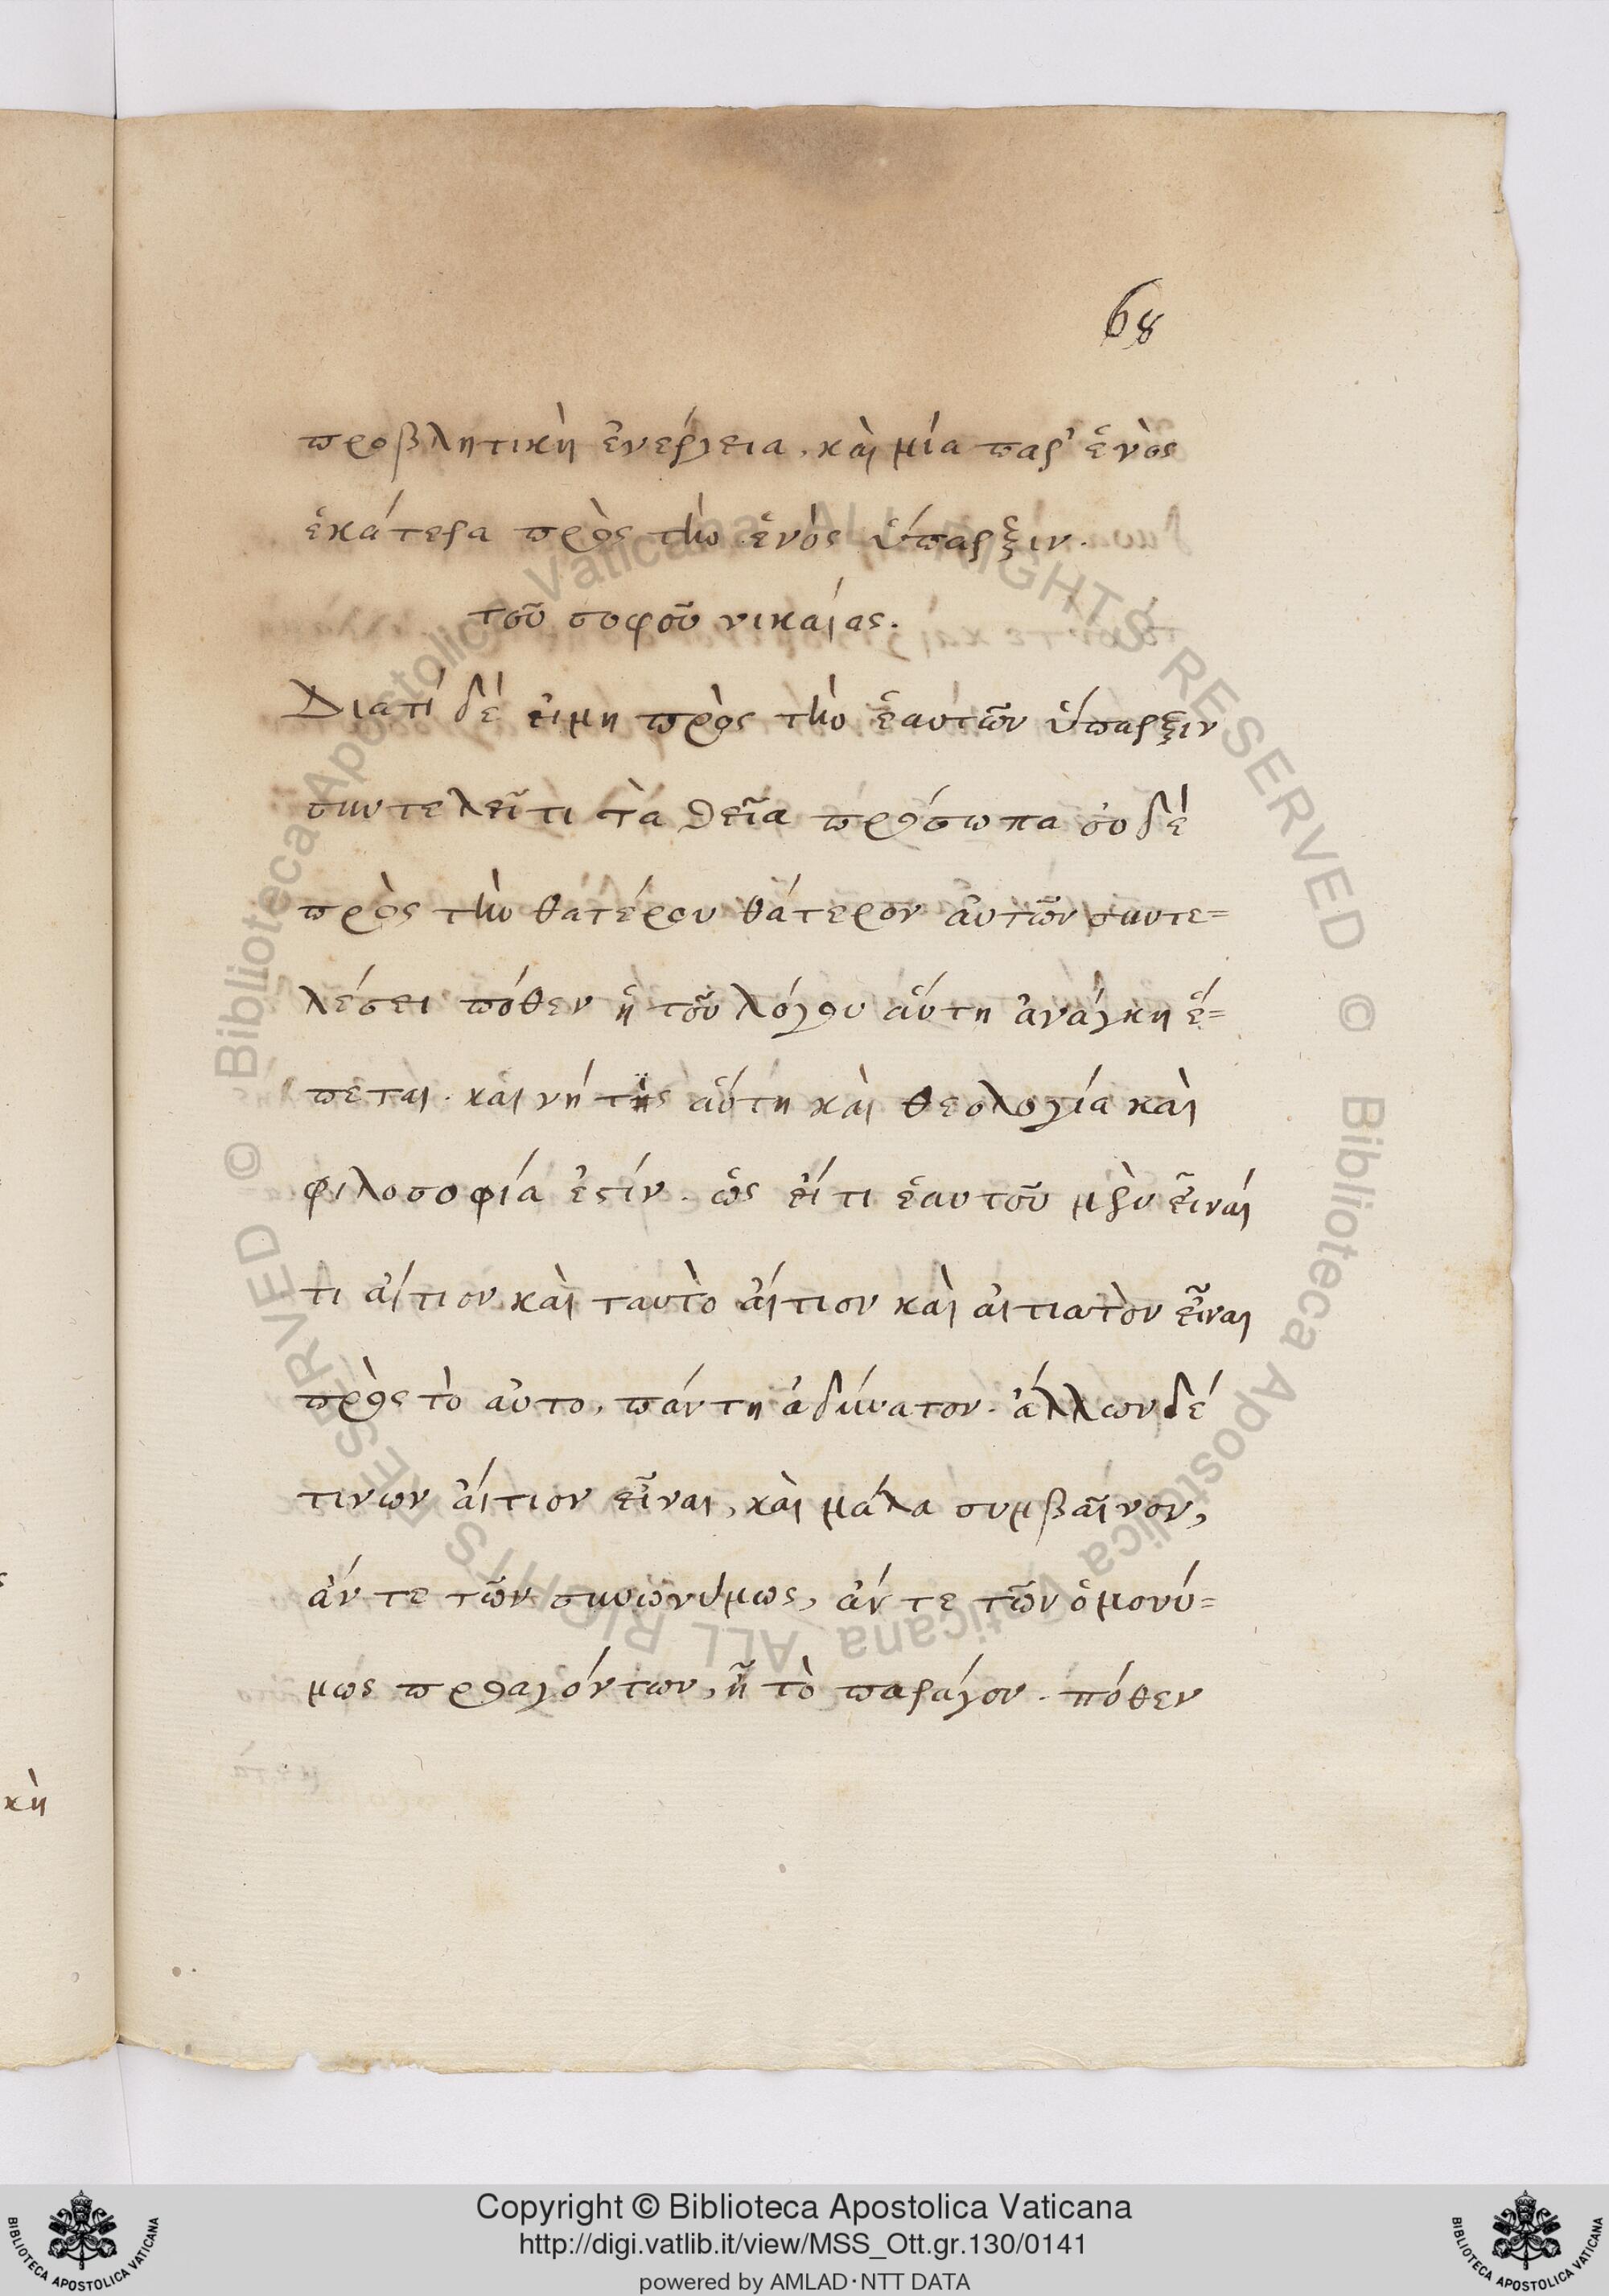 68
προβλητικὴ ἐνέργεια, καὶ μία παρ' ἑνὸς
ἑκάτερα πρὸς τὴν ἑνὸς ὕπαρξιν.
τοῦ σοφοῦ νικαίας.
Διατί δέ εἰμη πρὸς τὴν ἑαυτῶν ὕπαρξιν
συντελεῖ τι τὰ θεῖα πρόσωπα οὐδὲ
πρὸς τὴν θατέρου θάτερον αὐτῶν συντε=
λέσει πόθεν ἡ τοῦ λόγου αὕτη ἀνάγκη ἕ=
πεται. καὶ αὕτη καὶ θεολογία καὶ
φιλοσοφία ἐστίν. ὡς εἴ τι ἑαυτοῦ μὲν εἶναί
τι αἴτιον καὶ ταυτὸ αἴτιον καὶ αἰτιατὸν εἶναι
πρὸς τὸ αὐτο, πάντη ἀδύνατον. ἄλλων δέ
τινων αἴτιον εἶναι, καὶ μάλα συμβαῖνον,
ἄν τε τῶν συνωνύμως, ἄν τε τῶν ὁμονύ=
μως προαγόντων, ἢ τὸ παράγον. πόθεν
κὴ
Copyright © Biblioteca Apostolica Vaticana
http://digi.vatlib.it/view/MSS_Ott.gr.130/0141
powered by AMLAD·NTT DATA
BIBLIOTECA APOSTOLICA VATICANA
BIBLIOTECA APOSTOLICA VATICANA
© Biblioteca Apostolica Vaticana ALL RIGHTS RESERVED © Biblioteca Apostolica Vaticana ALL RIGHTS RESERVED